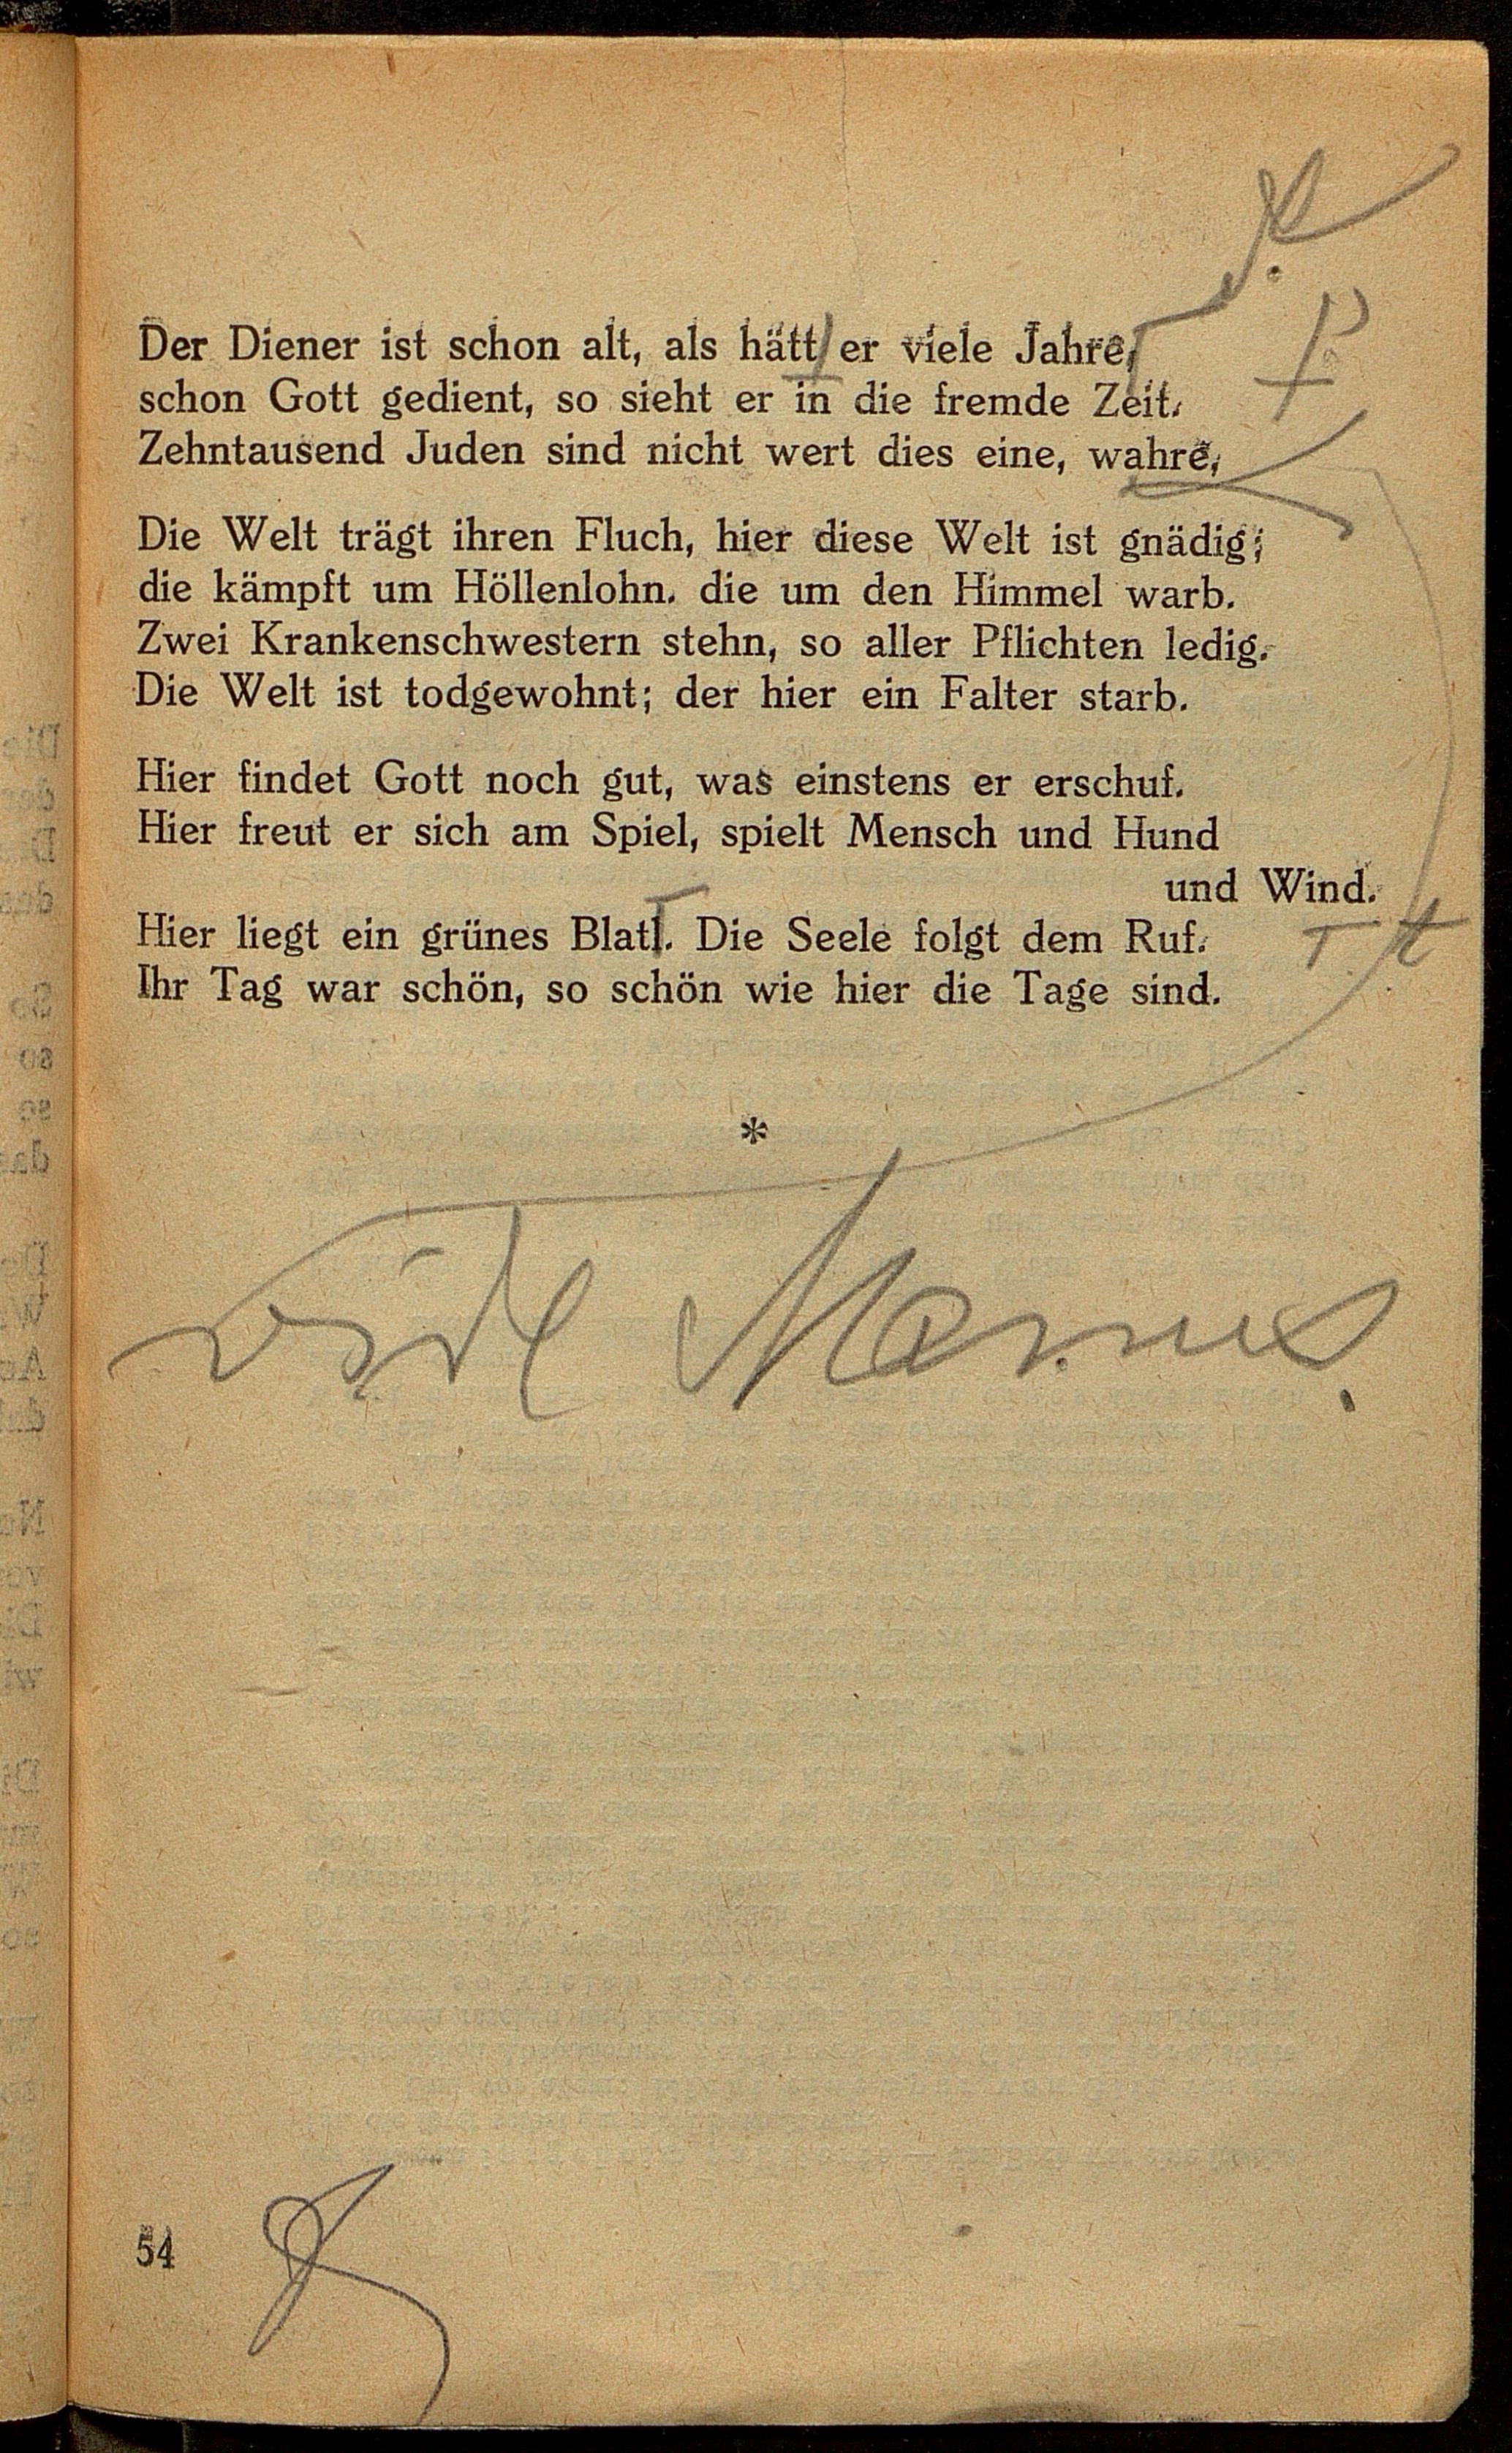 Der Diener ist schon alt, als hätt er viele Jahre,
schon Gott gedient, so sieht er in die fremde Zeit.
Zehntausend Juden sind nicht wert dies eine, wahre,
Die Welt trägt ihren Fluch, hier diese Welt ist gnädig;
die kämpft um Höllenlohn. die um den Himmel warb.
Zwei Krankenschwestern stehn, so aller Pflichten ledig.
Die Welt ist todgewohnt; der hier ein Falter starb.
Hier findet Gott noch gut, was einstens er erschuf.
Hier freut er sich am Spiel, spielt Mensch und Hund
und Wind.
Hier liegt ein grünes Blatl. Die Seele folgt dem Ruf.
T t
Ihr Tag war schön, so schön wie hier die Tage sind.
*
vide Manus.
54